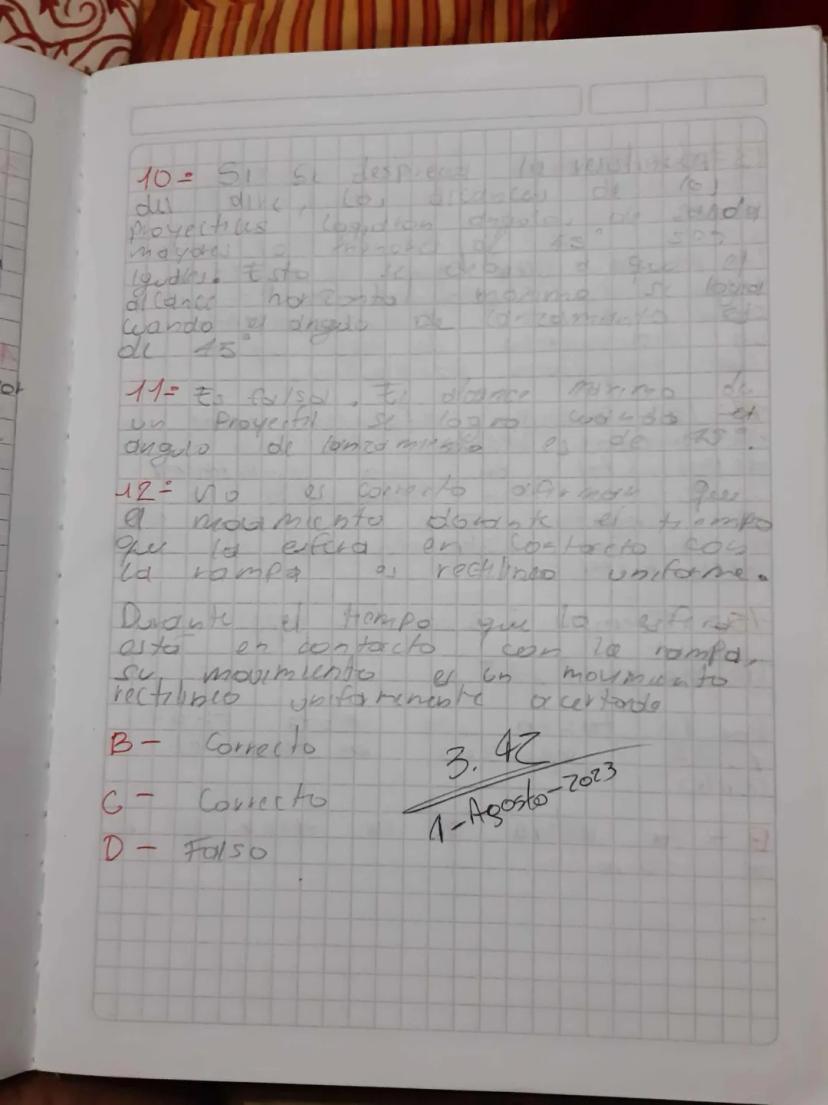 10= Si se desprecia la resistencia
del aire, los alcances de los
proyectiles ángulos
mayores o menores a 45° son
iguales. Esto se debe a que el
alcance horizontal máximo se logra
cuando el ángulo de lanzamiento es
de 45°
11= Es falso. El alcance máximo de
un Proyectil se logra cuando el
ángulo de lanzamiento es de 45°.
12= No es correcto afirmar que
el movimiento durante el tiempo
que la esfera en contacto con
la rampa es rectilineo uniforme.
Durante el tiempo que la esfera
está en contacto con la rampa,
su movimiento es un movimiento
rectilineo uniformente
B- Correcto
C- Correcto
D- Falso
3.42
1-Agosto-2023